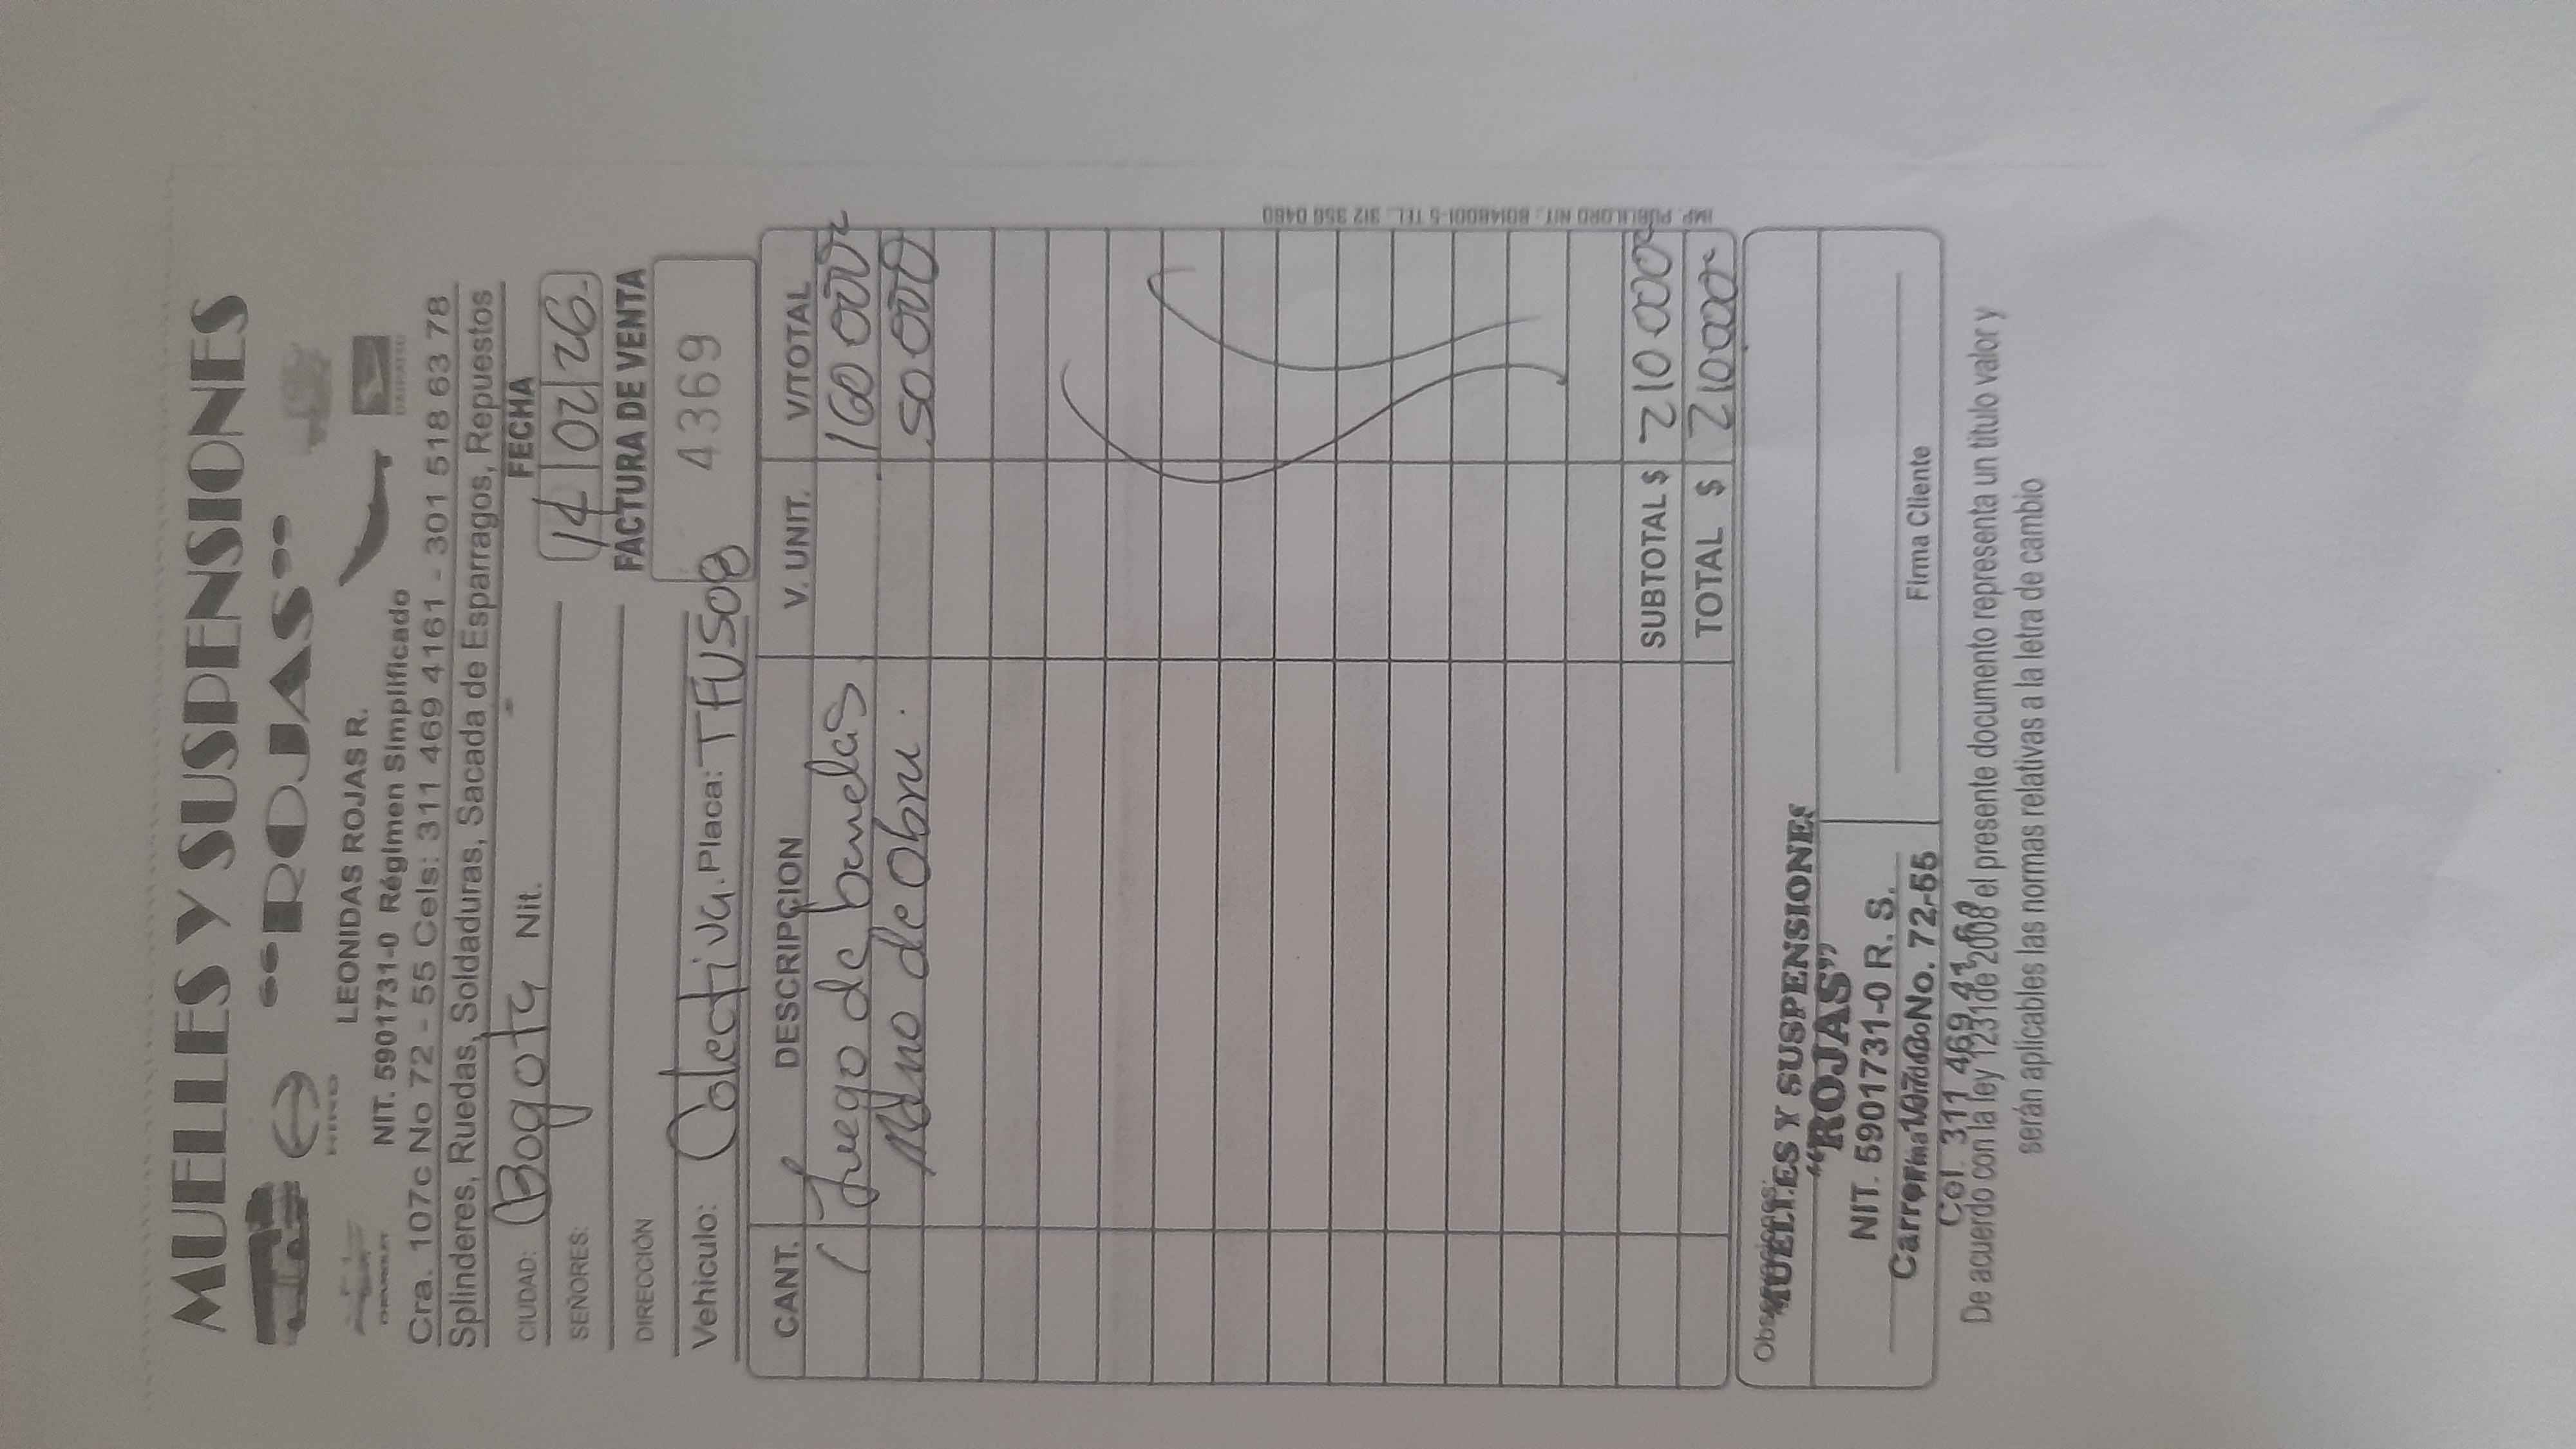 MUELLES Y SUSPENSIONES
"ROJAS"
HINO
CHEVROLET
DAIHATSU
LEONIDAS ROJAS R.
NIT. 5901731-0 Régimen Simplificado
Cra. 107c No 72 - 55 Cels: 311 469 4161 - 301 518 63 78
Splinderes, Ruedas, Soldaduras, Sacada de Esparragos, Repuestos
CIUDAD: Bogota Nit. FECHA
14 02 26
SEÑORES:
FACTURA DE VENTA
DIRECCIÓN
4369
Vehiculo: Colectiva. Placa: TFU508
CANT. DESCRIPCION V. UNIT. V/TOTAL
1 Juego de bandas 160 000
Mano de Obra. 50 000
SUBTOTAL $ 210 000
TOTAL $ 210000
IMP. PUBLILORD NIT.: 80148001-5 TEL.: 312 356 0460
Observaciones:
MUELLES Y SUSPENSIONES
"ROJAS"
NIT. 5901731-0 R. S.
Carrera 107 C No. 72-55
Firma Vendedor
Firma Cliente
Cel. 311 469 41 61
De acuerdo con la ley 1231 de 2008 el presente documento representa un titulo valor y
serán aplicables las normas relativas a la letra de cambio